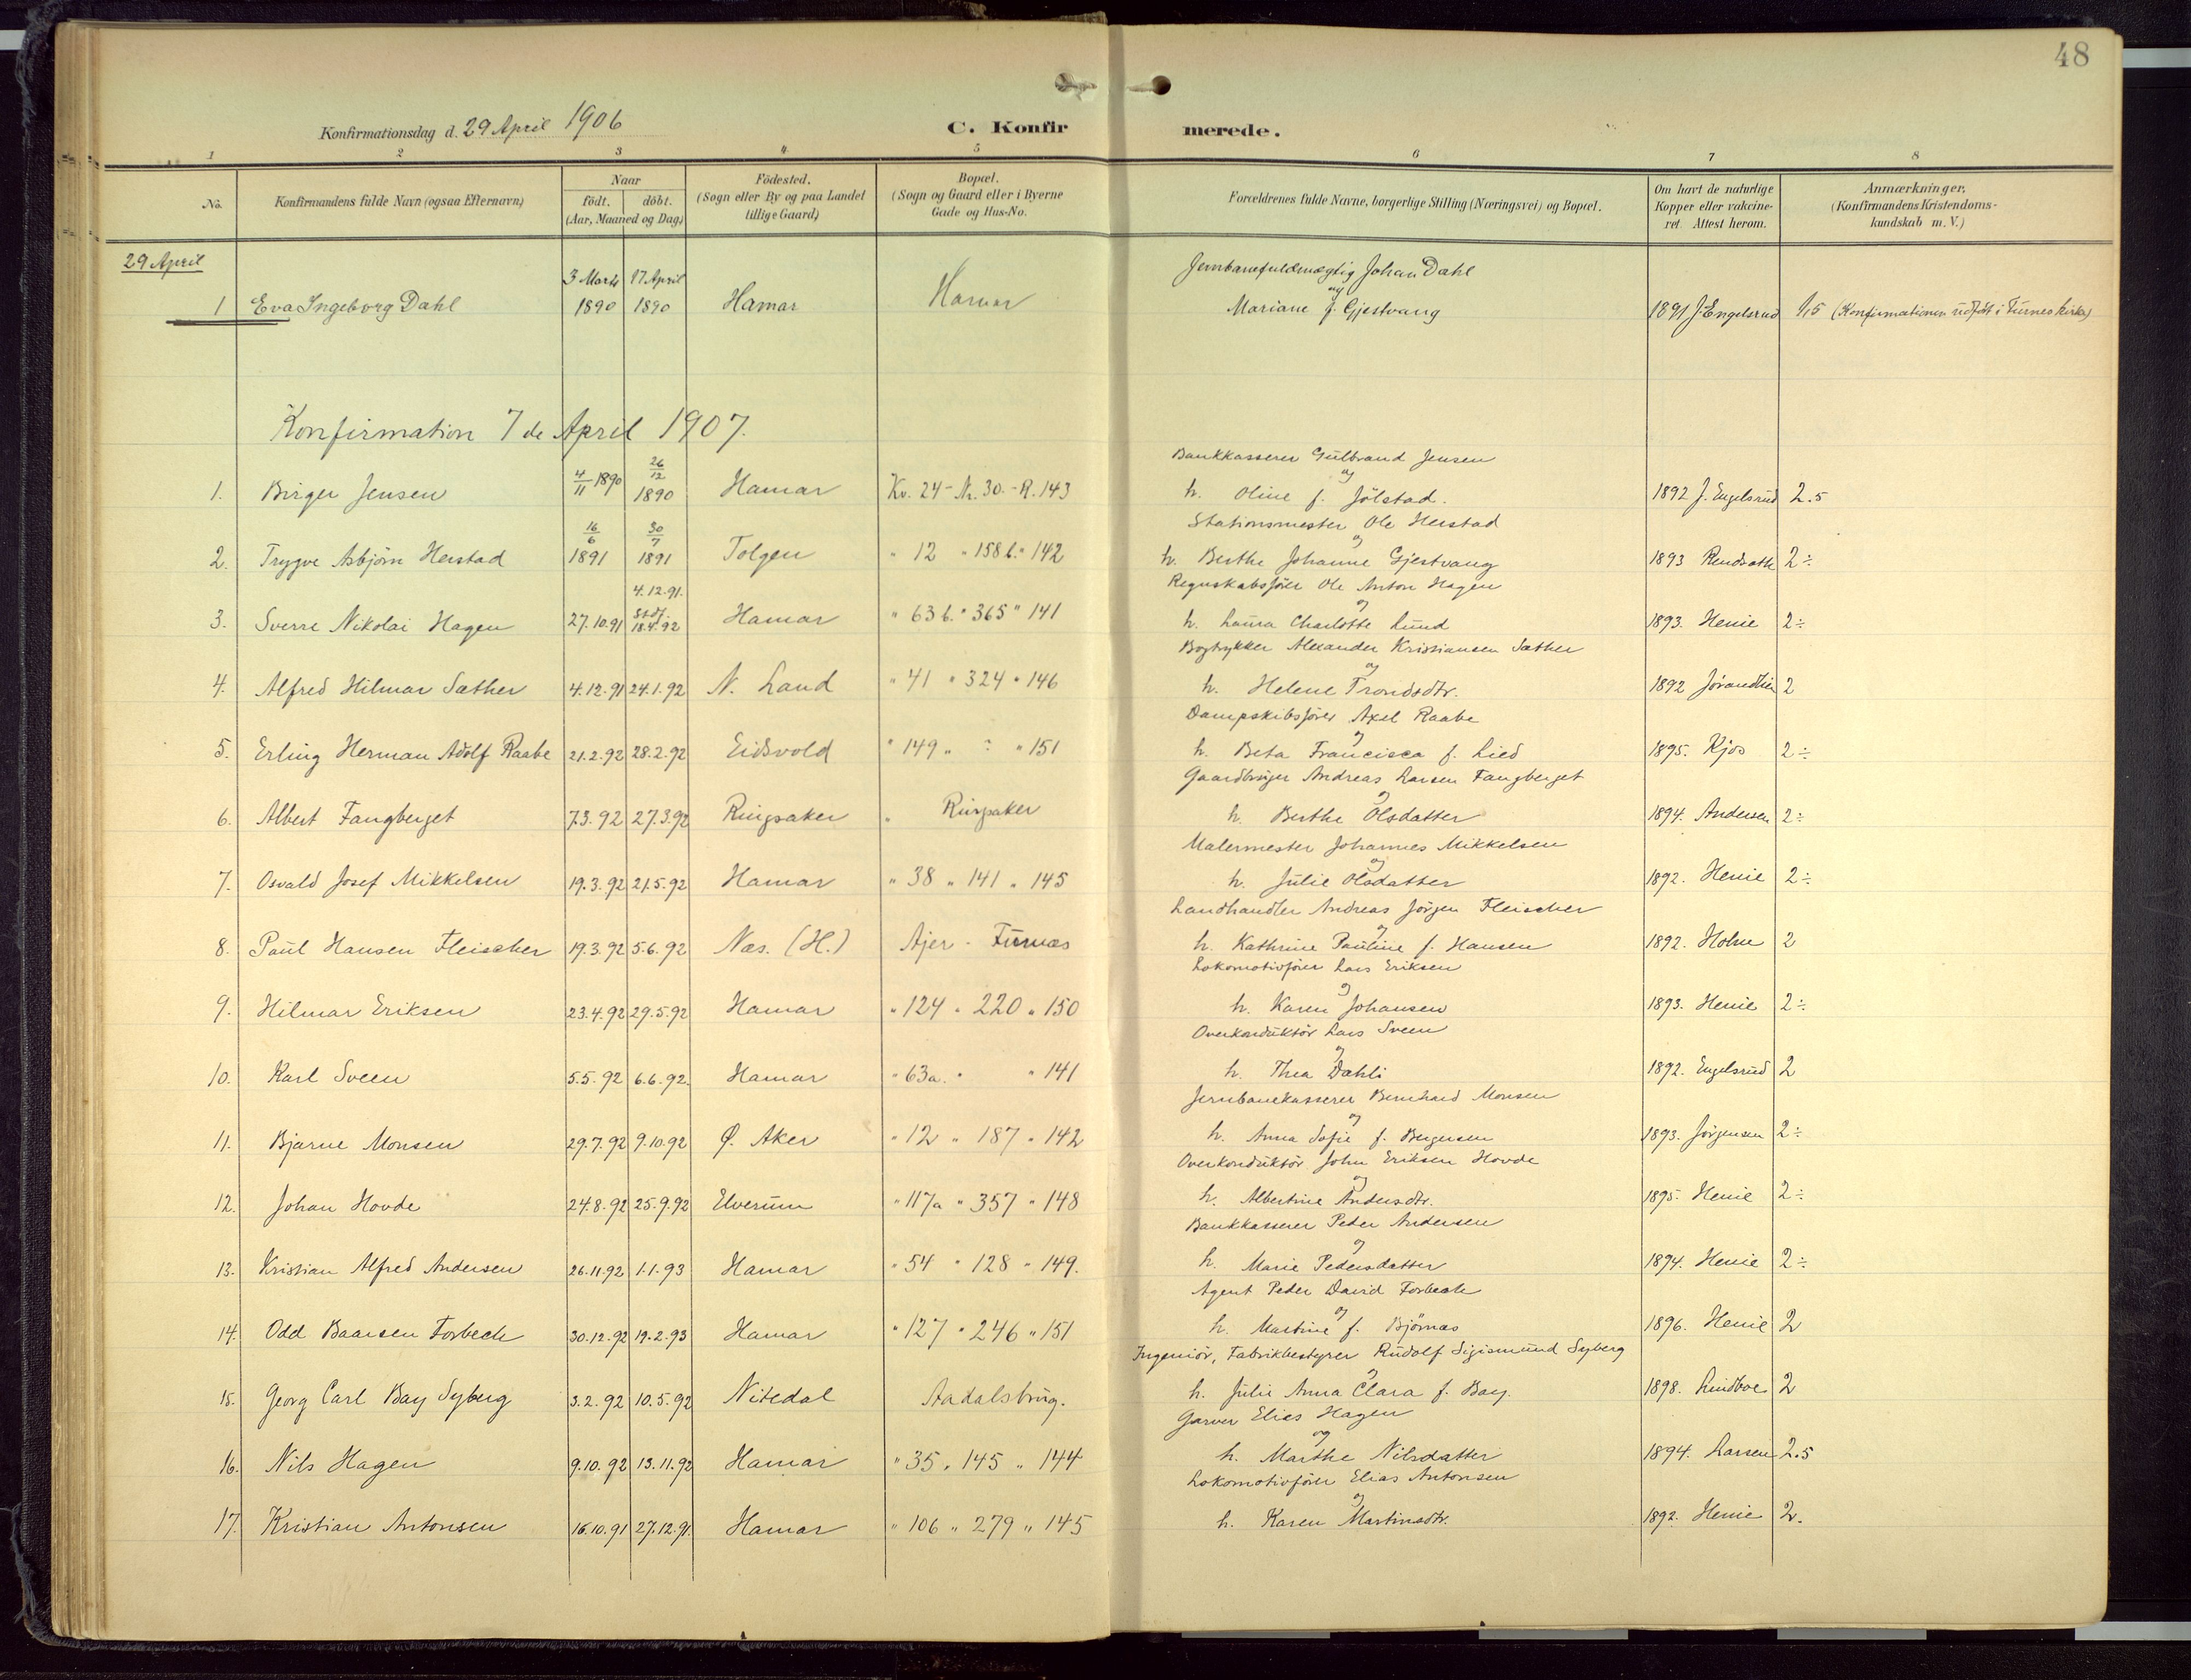 48
Konfirmationsdag d. 29 April 1906 C. Konfirmerede.
1 2 3 4 5 6 7 8
No. Konfirmandens fulde Navn (ogsaa Efternavn) Naar födt. döbt. (Aar, Maaned og Dag) Födested. (Sogn eller By og paa Landet tillige Gaard) Bopæl. (Sogn og Gaard eller i Byerne Gade og Hus-No. Forældrenes fulde Navne, borgerlige Stilling (Næringsvei) og Bopæl. Om havt de naturlige Kopper eller vakcineret. Attest herom. Anmærkninger, (Konfirmandens Kristendomskundskab m. V.)
29 April
3 Marts 17 April Jernbanefuldmægtig Johan Dahl
1 Eva Ingeborg Dahl 1890 1890 Hamar Hamar og Mariane f. Gjestvang 1891 J. Engelsrud 1,5 (Konfirmationen udført i Furnes kirke)
Konfirmation 7de April 1907.
Bankkasserer Gulbrand Jensen
1. Birger Jensen 4/11 1890 26/12 1890 Hamar Kv. 24 - Nr. 30. - R. 143 og h. Oline f. Jölstad. 1892 J. Engelsrud 2.5
Stationsmester Ole Herstad
2. Trygve Asbjörn Herstad 16/6 1891 30/7 1891 Tolgen " 12 " 158 b. " 142 og h. Berthe Johanne Gjestvang 1893 2÷
Regnskabsförer Ole Anton Hagen
3. Sverre Nikolai Hagen 27.10.91 4.12.91. Stdf. 18.4.92 Hamar " 63 b. " 365 " 141 og h. Laura Charlotte Lund 1893. Henie 2÷
Bogtrykker Alexander Kristiansen Sæther
4. Alfred Hilmar Sæther 4.12.91 24.1.92 N. Land " 41 " 324 " 146 og h. Helene Trondsdtr. 1892 2
Dampskibsförer Axel Raabe
5. Erling Herman Adolf Raabe 21.2.92 28.2.92 Eidsvold " 149 " ÷ " 151 og h. Beta Francisca f. Lied 1895. Kjos 2÷
Gaardbruger Andreas Larsen Fangberget
6. Albert Fangberget 7.3.92 27.3.92 Ringsaker " Ringsaker og h. Berthe Olsdatter 1894. Andersen 2÷
Malermester Johannes Mikkelsen
7. Osvald Josef Mikkelsen 19.3.92 21.5.92 Hamar " 38 " 141 " 145 og h. Julie Olsdatter 1892. Henie 2÷
Landhandler Andreas Jörgen Fleischer
8. Paul Hansen Fleischer 19.3.92 5.6.92 Næs. (H.) Ajer - Furnæs og h. Kathrine Pauline f. Hansen 1892. Holm 2
Lokomotivförer Lars Eriksen
9. Hilmar Eriksen 23.4.92 29.5.92 Hamar " 124 " 220 " 150 og h. Karen Johansen 1893. Henie 2÷
Overkonduktör Lars Sveen
10. Karl Sveen 5.5.92 6.6.92. Hamar " 63a. " " 141 og h. Thea Dahli 1892. Engelsrud 2
Jernbanekasserer Bernhard Monsen
11. Bjarne Monsen 29.7.92 9.10.92 Ø. Aker " 12 " 187 " 142 og h. Anna Sofie f. Bergersen 1893. Jörgensen 2÷
Overkonduktör John Eriksen Hovde
12. Johan Hovde 24.8.92 25.9.92 Elverum " 117a " 357 " 148 og h. Albertine Andersdtr. 1895. Henie 2÷
Bankkasserer Peder Andersen
13. Kristian Alfred Andersen 26.11.92 1.1.93 Hamar " 54 " 128 " 149. og h. Marie Pedersdatter 1894. Henie 2÷
Agent Peder David Forbech
14. Odd Baarsen Forbech 30.12.92 19.2.93 Hamar " 127 " 246 " 151 og h. Martine f. Björnæs 1896. Henie 2
Ingeniör, Fabrikbestyrer Rudolf Sigismund Syberg
15. Georg Carl Bay Syberg 3.2.92 10.5.92 Nitedal Aadalsbrug. og h. Julie Anna Clara f. Bay. 1898. Lindboe 2
Garver Elies Hagen
16. Nils Hagen 9.10.92 13.11.92 Hamar " 35 " 145 " 144 og h. Marthe Nilsdatter 1894. Larsen 2.5
Lokomotivförer Elias Antonsen
17. Kristian Antonsen 16.10.91 27.12.91. Hamar " 106 " 279 " 145 og h. Karen Martinsdtr. 1892. Henie 2.